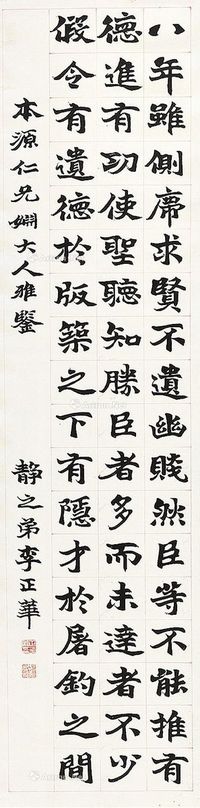 八年雖側席求賢不遺幽賤然臣等不能推有
德進有功使聖聽知勝臣者多而未達者不少
假令有遺德於版築之下有隱才於屠釣之間
本源仁兄姻大人雅鑒
靜之弟李正華